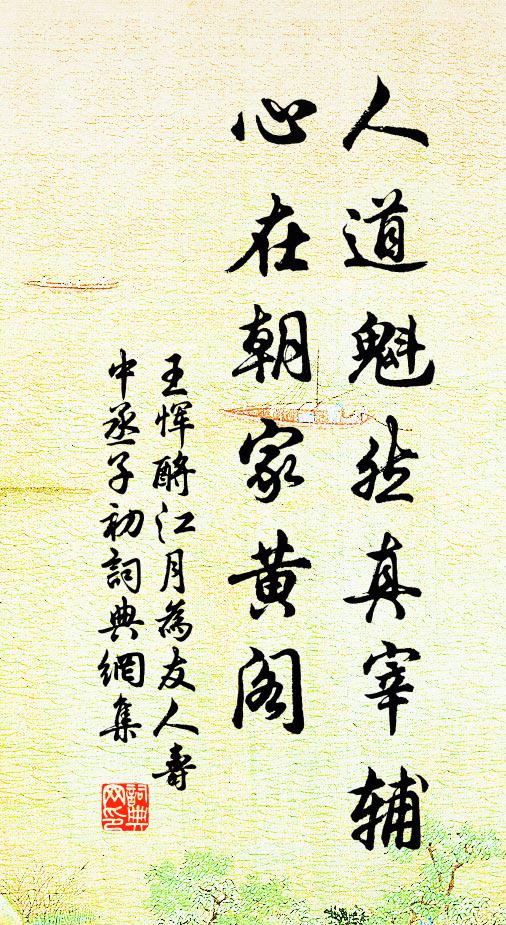 人道魁然真宰辅
心在朝家黄阁
王恽酹江月為友人壽
中丞子初詞典網集
詞典网印